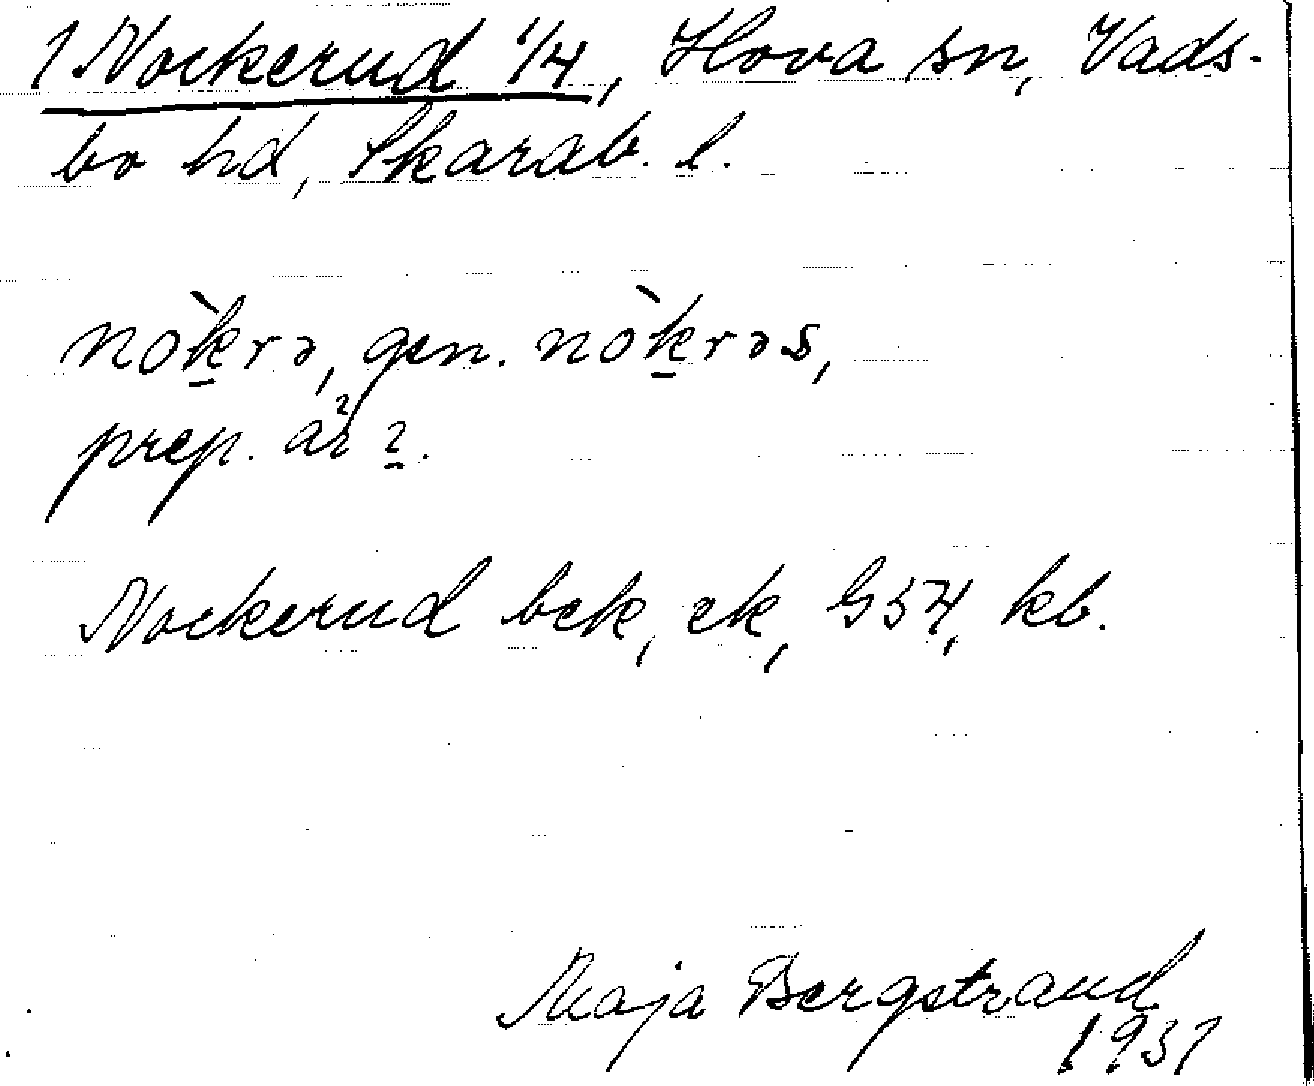 1 Nockerud 1/4, Hova sn, Vads-
bo hd, Skarab. l.
nò̱krə, gen. nò̱krəs,
prep.
Nockerud bek, ek, G54, kb.
Maja Bergstrand
1931